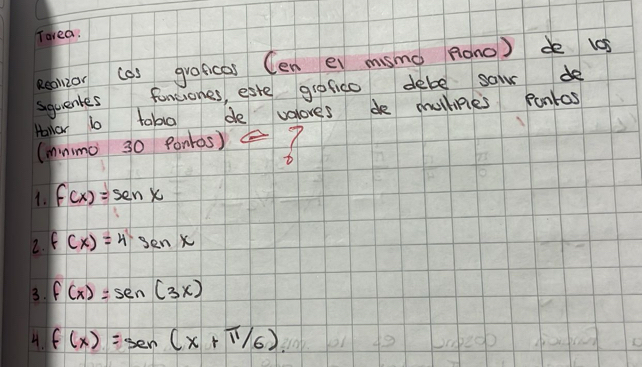 Tarea:
Realizar las graficas (en el mismo Plano) de las
siguientes funciones, este grafico debe salir de
Hallar la tabla de valores de multiples Puntos
(minimo 30 Puntos) ?
1. f(x) = sen x
2. f(x) = 4 sen x
3. f(x) = sen (3x)
4. f(x) = sen (x + π/6).